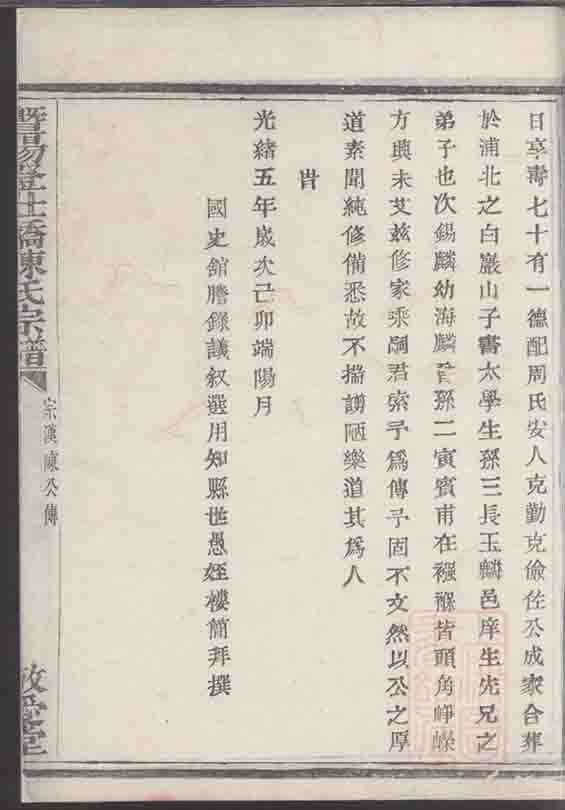 日享壽七十有一德配周氏安人克勤克儉佐公成家合葬
於浦北之白巖山子書太學生孫三長玉麟邑庠生先兄之
弟子也次錫麟幼海麟曾孫二寅賓甫在襁褓皆頭角崢嶸
方興未艾玆修家乘嗣君索予爲傳予固不文然以公之厚
道素聞純修備悉故不揣謭陋樂道其爲人
旹
光緒五年歲次己卯端陽月
國史館謄錄議叙選用知縣世愚姪樓簡拜撰
暨陽登仕橋陳氏宗譜
宗漢陳公傳
敬愛堂